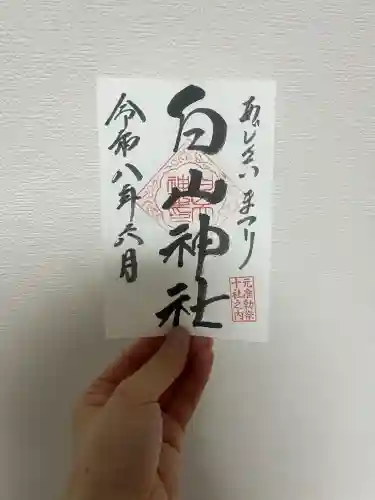 あじさいまつり
白山神社
令和八年六月
元准勅祭
十社之内